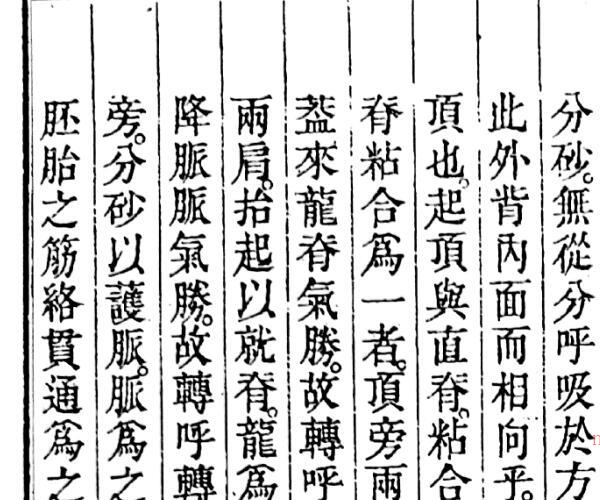 分砂。無從分呼吸於方
此外背內面而相向乎。
頂也。起頂與直脊。粘合
脊粘合爲一者。頂旁兩
葢來龍脊氣勝。故轉呼
兩肩。抬起以就脊。龍爲
降脈脈氣勝。故轉呼轉
旁。分砂以護脈。脈爲之
胚胎之筋絡貫通爲之